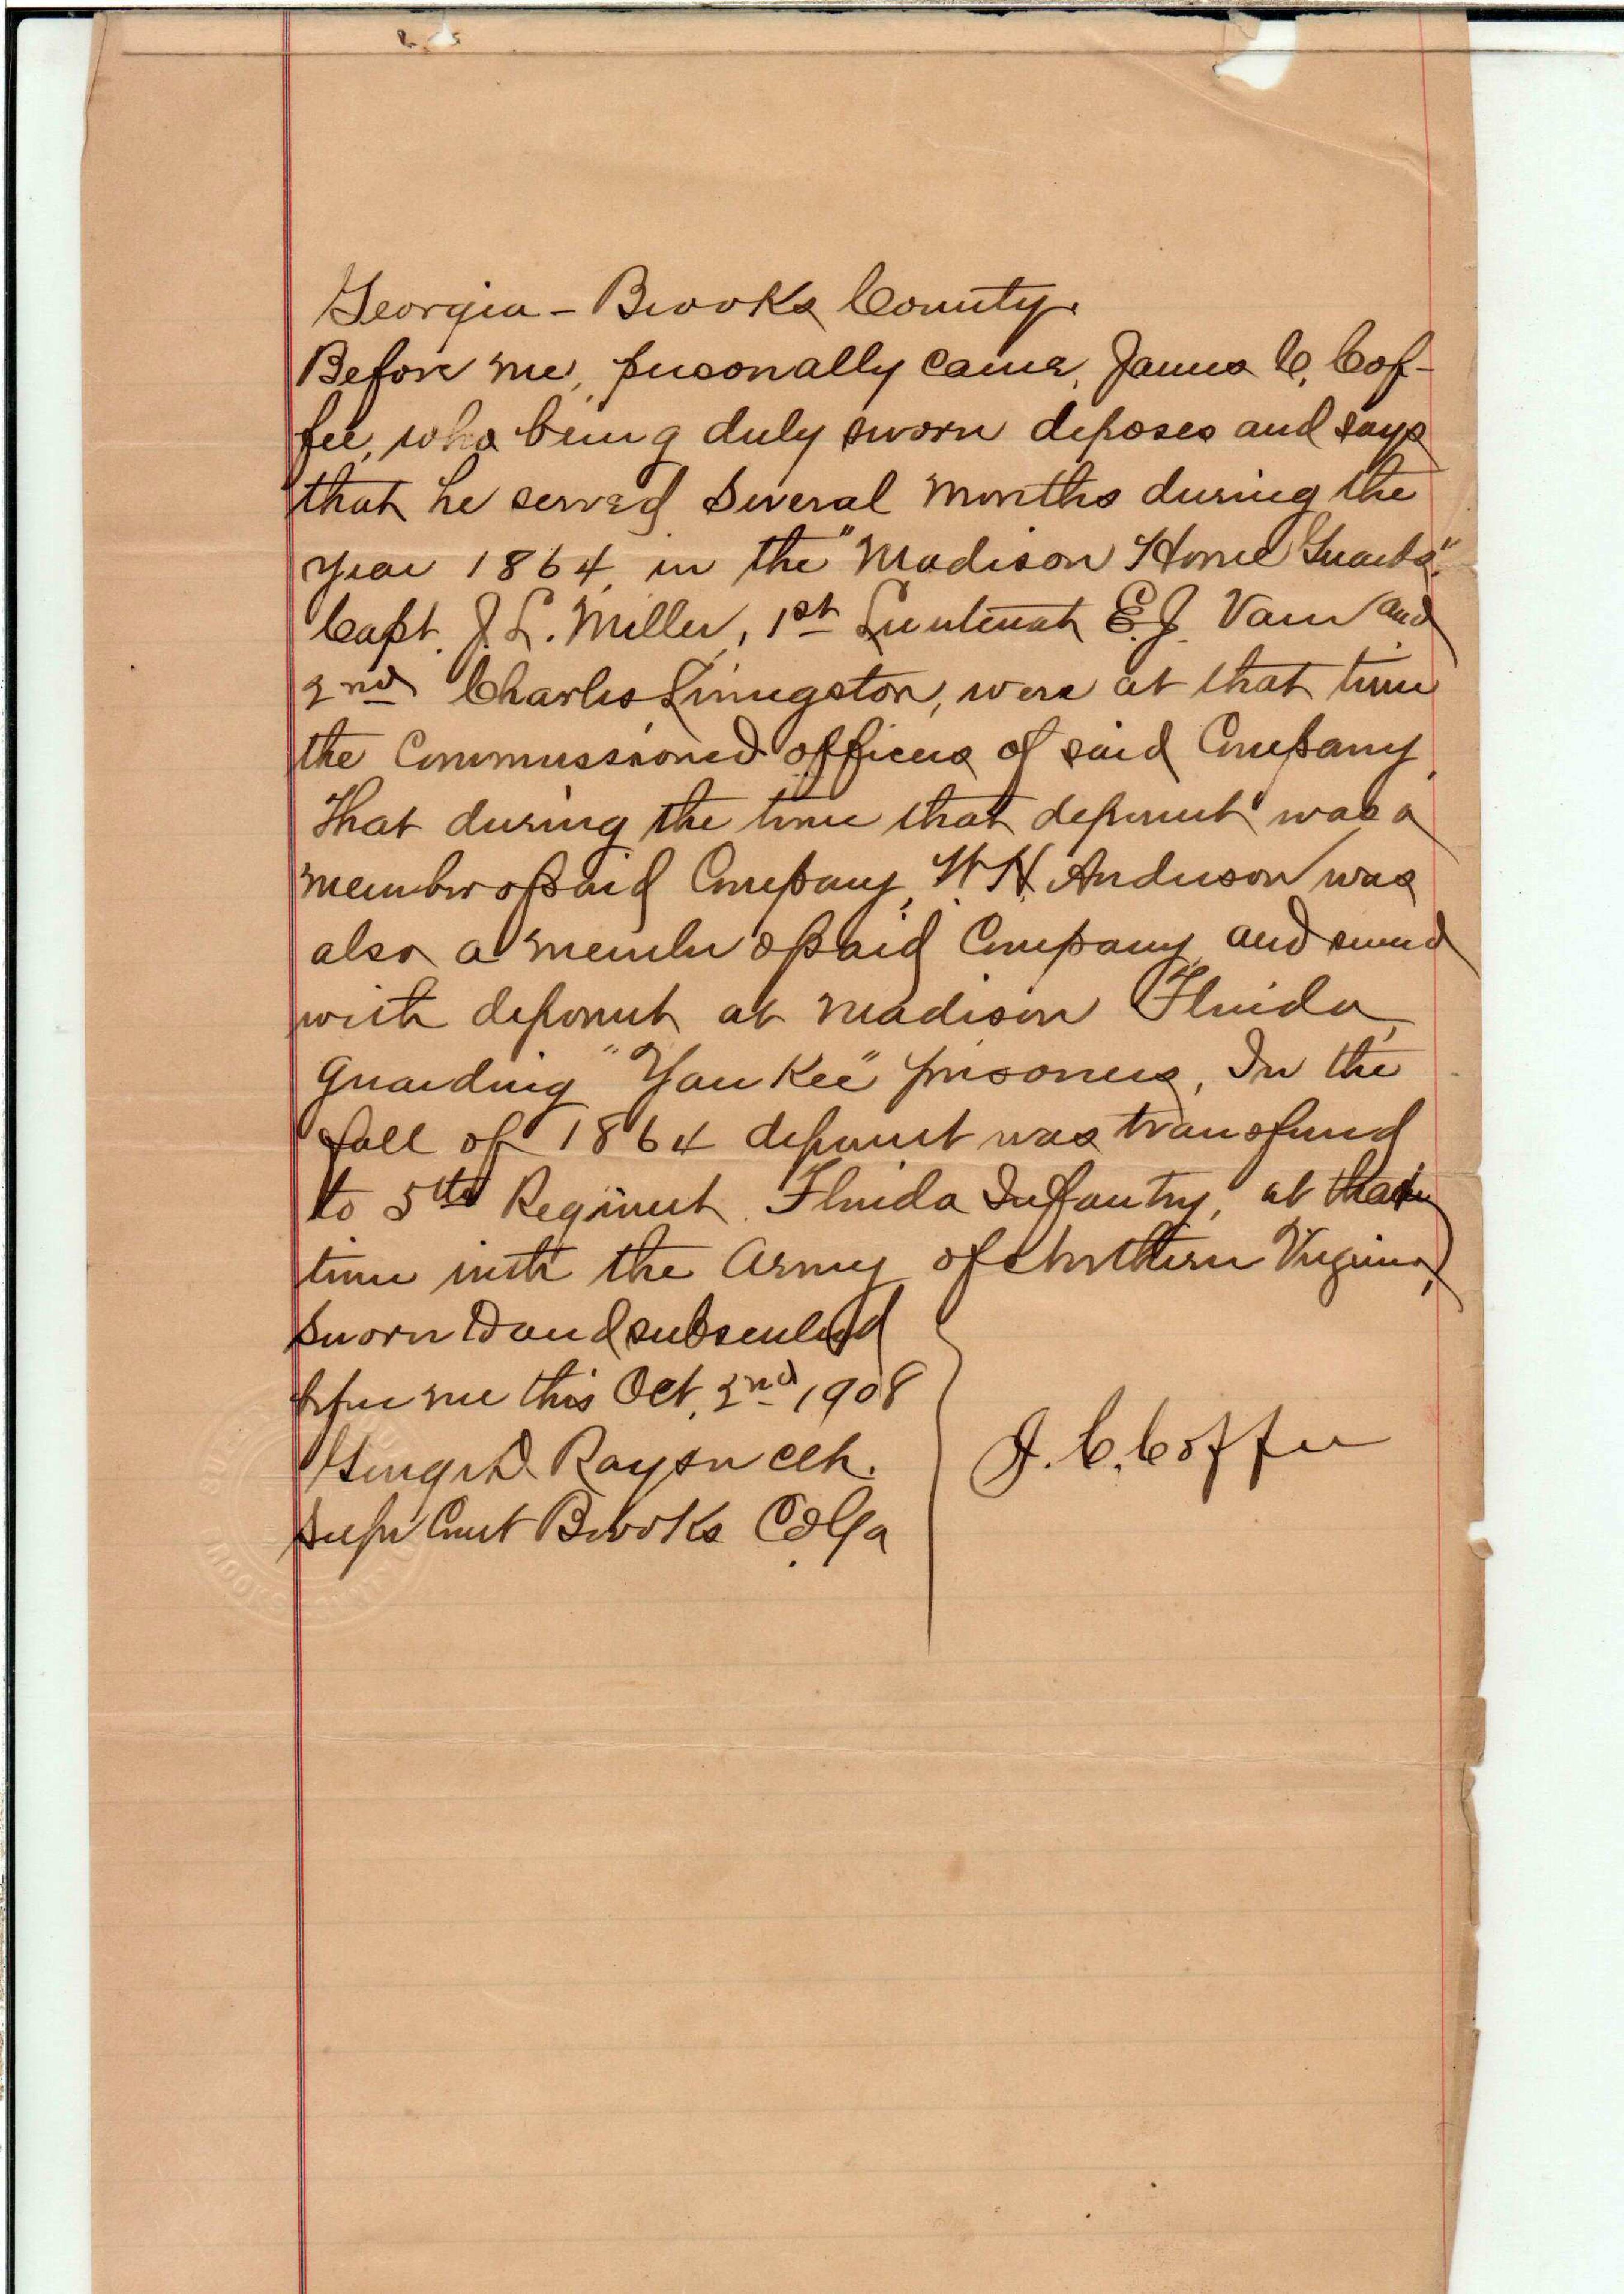 Georgia - Brooks County.
Before me, personally came, James C. Cof-
fee, who being duly sworn deposes and says
that he served several months during the
year 1864, in the "Madison Home Guards".
Capt. J. L. Miller, 1st Lieutenant E. J. Vann and
2nd Charles Livingston, were at that time
the Commissioned officers of said Company.
That during the time that deponent was a
member of said Company, W. H. Anderson was
also a member of said Company and served
with deponent at Madison Florida,
guarding "Yankee" prisoners, In the
fall of 1864 deponent was transfered
to 5th Regiment Florida Infantry, at that
time with the Army of Northern Virginia,
Sworn to and subscribed
before me this Oct, 2nd 1908
J. C. Coffee
Raysor Clk.
Supr Court Brooks Co Ga